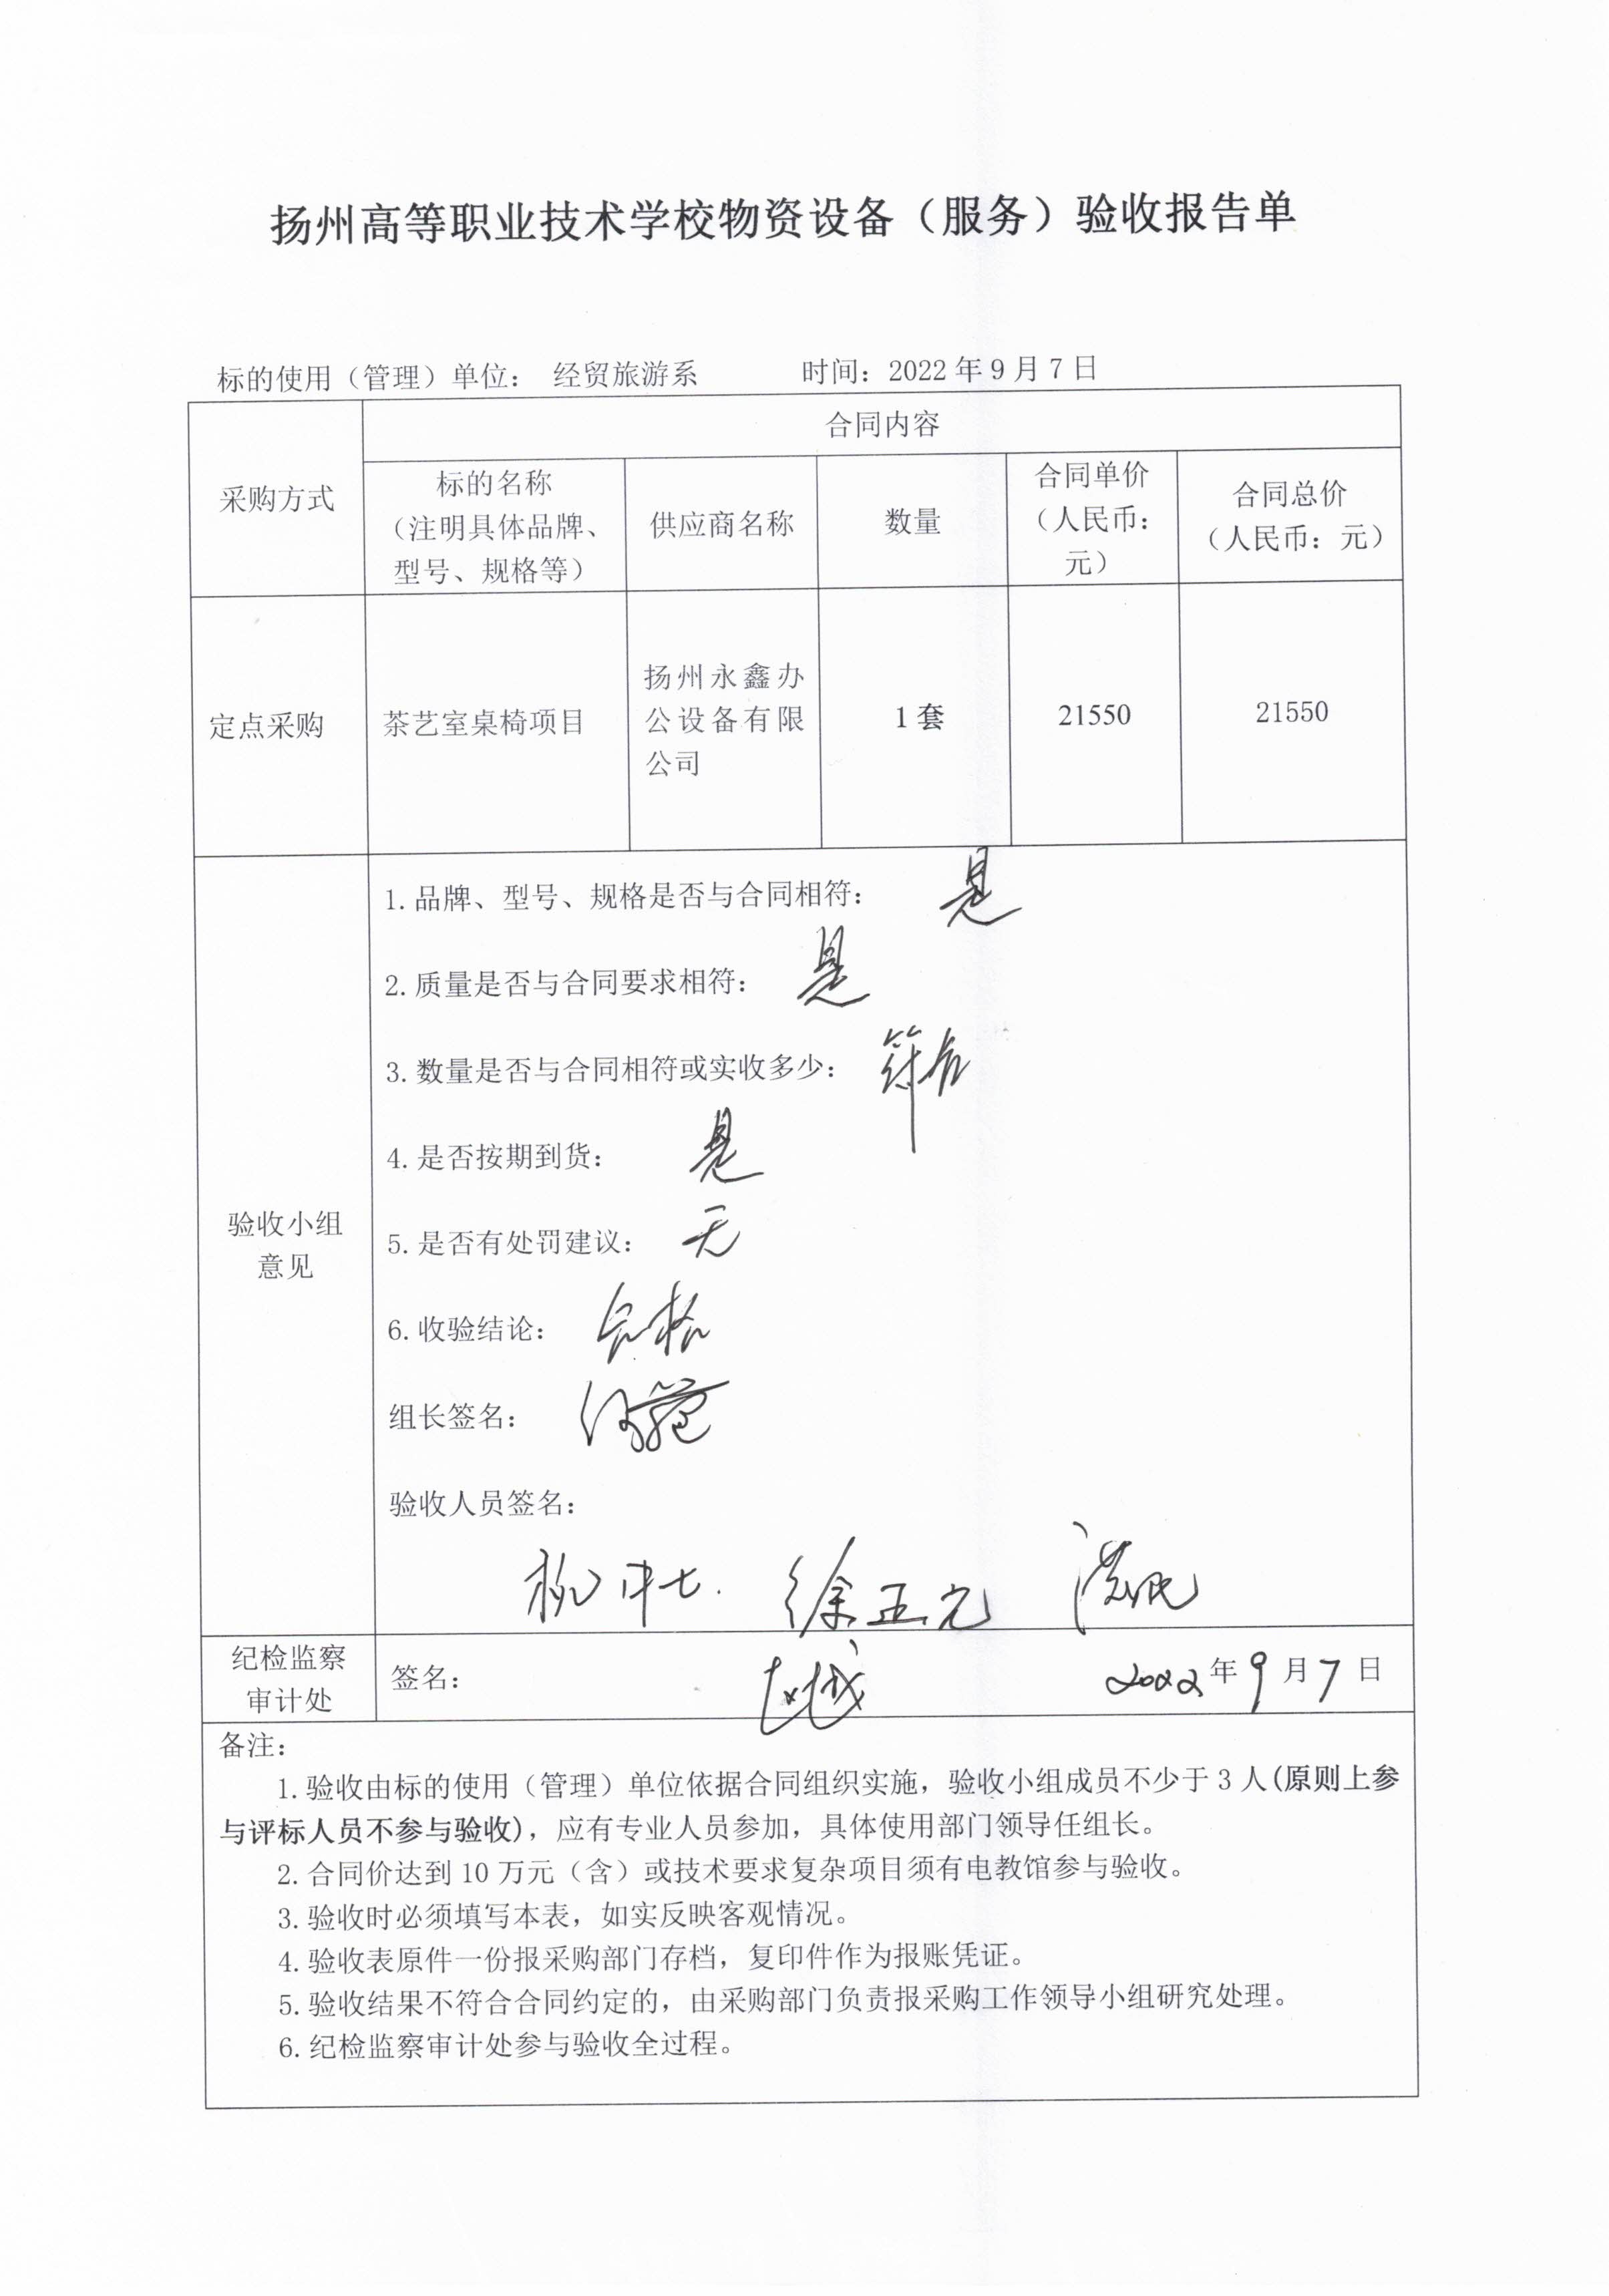 扬州高等职业技术学校物资设备（服务）验收报告单
标的使用（管理）单位： 经贸旅游系 时间：2022 年 9 月 7 日
采购方式
合同内容
标的名称
（注明具体品牌、
型号、规格等）
供应商名称
数量
合同单价
（人民币：
元）
合同总价
（人民币：元）
定点采购
茶艺室桌椅项目
扬州永鑫办
公设备有限
公司
1 套
21550
21550
验收小组
意见
1.品牌、型号、规格是否与合同相符： 是
2.质量是否与合同要求相符： 是
3.数量是否与合同相符或实收多少： 符合
4.是否按期到货： 是
5.是否有处罚建议： 无
6.收验结论： 合格
组长签名：
验收人员签名：
徐正元
纪检监察
审计处
签名： 2022 年 9 月 7 日
备注：
1.验收由标的使用（管理）单位依据合同组织实施，验收小组成员不少于 3 人(原则上参
与评标人员不参与验收)，应有专业人员参加，具体使用部门领导任组长。
2.合同价达到 10 万元（含）或技术要求复杂项目须有电教馆参与验收。
3.验收时必须填写本表，如实反映客观情况。
4.验收表原件一份报采购部门存档，复印件作为报账凭证。
5.验收结果不符合合同约定的，由采购部门负责报采购工作领导小组研究处理。
6.纪检监察审计处参与验收全过程。